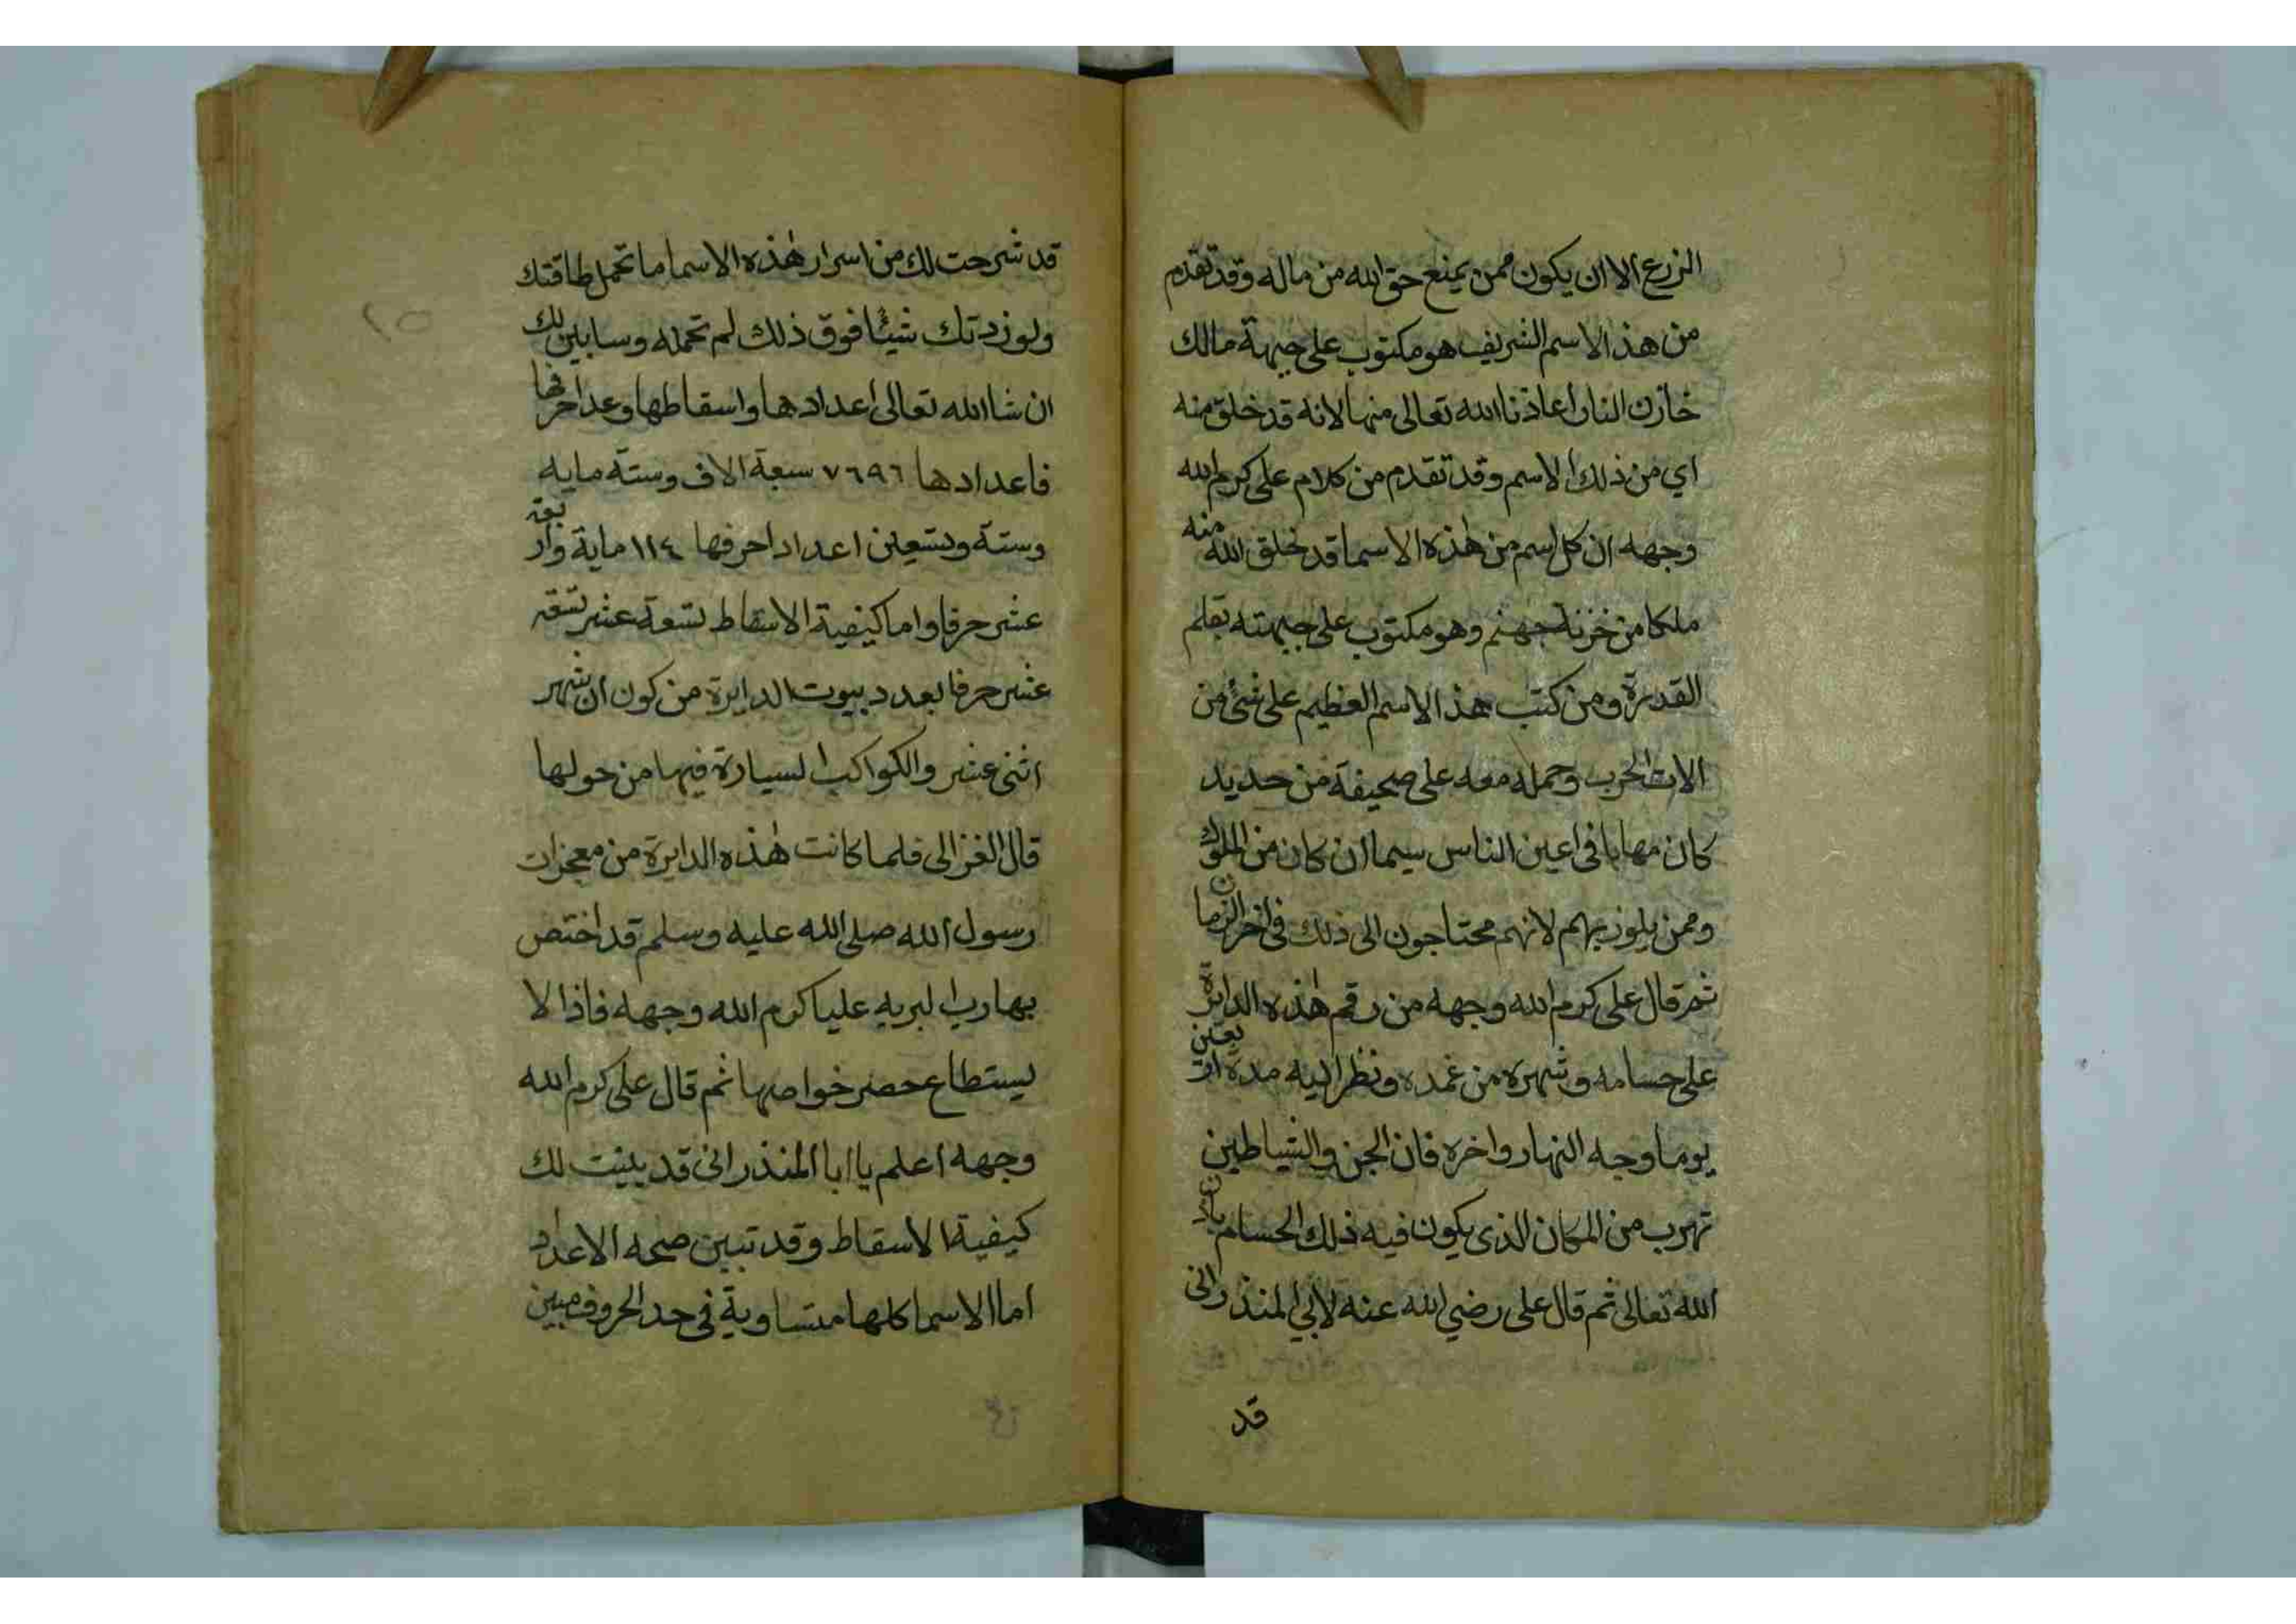 الزرع الا ان يكون ممن يمنع حق الله من ماله وقد تقدم
من هذا الاسم الشريف هو مكتوب على جبهة مالك
خازن النار اعاذنا الله تعالى منها لانه قد خلق منه
اي من ذلك الاسم وقد تقدم من كلام على كرم الله
وجهه ان كل اسم من هذه الاسما قد خلق الله منه
ملكا من خزنة جهنم وهو مكتوب على جبهته بقلم
القدرة ومن كتب هذا الاسم العظيم على شئ من
الات الحرب وحمله معه على صحيفة من حديد
كان مهابا في اعين الناس سيما ان كان من الملوك
وممن يلوز بهم لانهم محتاجون الى ذلك في اخر الزمان
ثم قال على كرم الله وجهه من رقم هذه الدايرة
على حسامه وشهره من غمده ونظر اليه مدة اربعين
يوما وجه النهار واخره فان الجن والشياطين
تهرب من المكان الذى يكون فيه ذلك الحسام باذن
الله تعالى ثم قال على رضي الله عنه لابي المنذر انى
قد
قد شرحت لك من اسرار هذه الاسما ما تحمل طاقتك
ولو زدتك شيئا فوق ذلك لم تحمله وسابين لك
ان شا الله تعالى اعدادها واسقاطها وعد احرفها
فاعدادها ٧٦٩٦ سبعة الاف وستة مايه
وستة وتسعين اعداد احرفها ١١٤ ماية واربعة
عشر حرفا واما كيفية الاسقاط تسعة عشر تسعة
عشر حرفا بعدد بيوت الدايرة من كون ان شهر
اثنى عشر والكواكب السيارة فيها من حولها
قال الغزالى فلما كانت هذه الدايرة من معجزات
رسول الله صلى الله عليه وسلم قد اختص
بها رب البريه عليا كرم الله وجهه فاذا لا
يستطاع حصر خواصها ثم قال على كرم الله
وجهه اعلم يا ابا المنذر انى قد بينت لك
كيفية الاسقاط وقد تبين صحه الاعداد
اما الاسما كلها متساوية في حد الحروف مبين